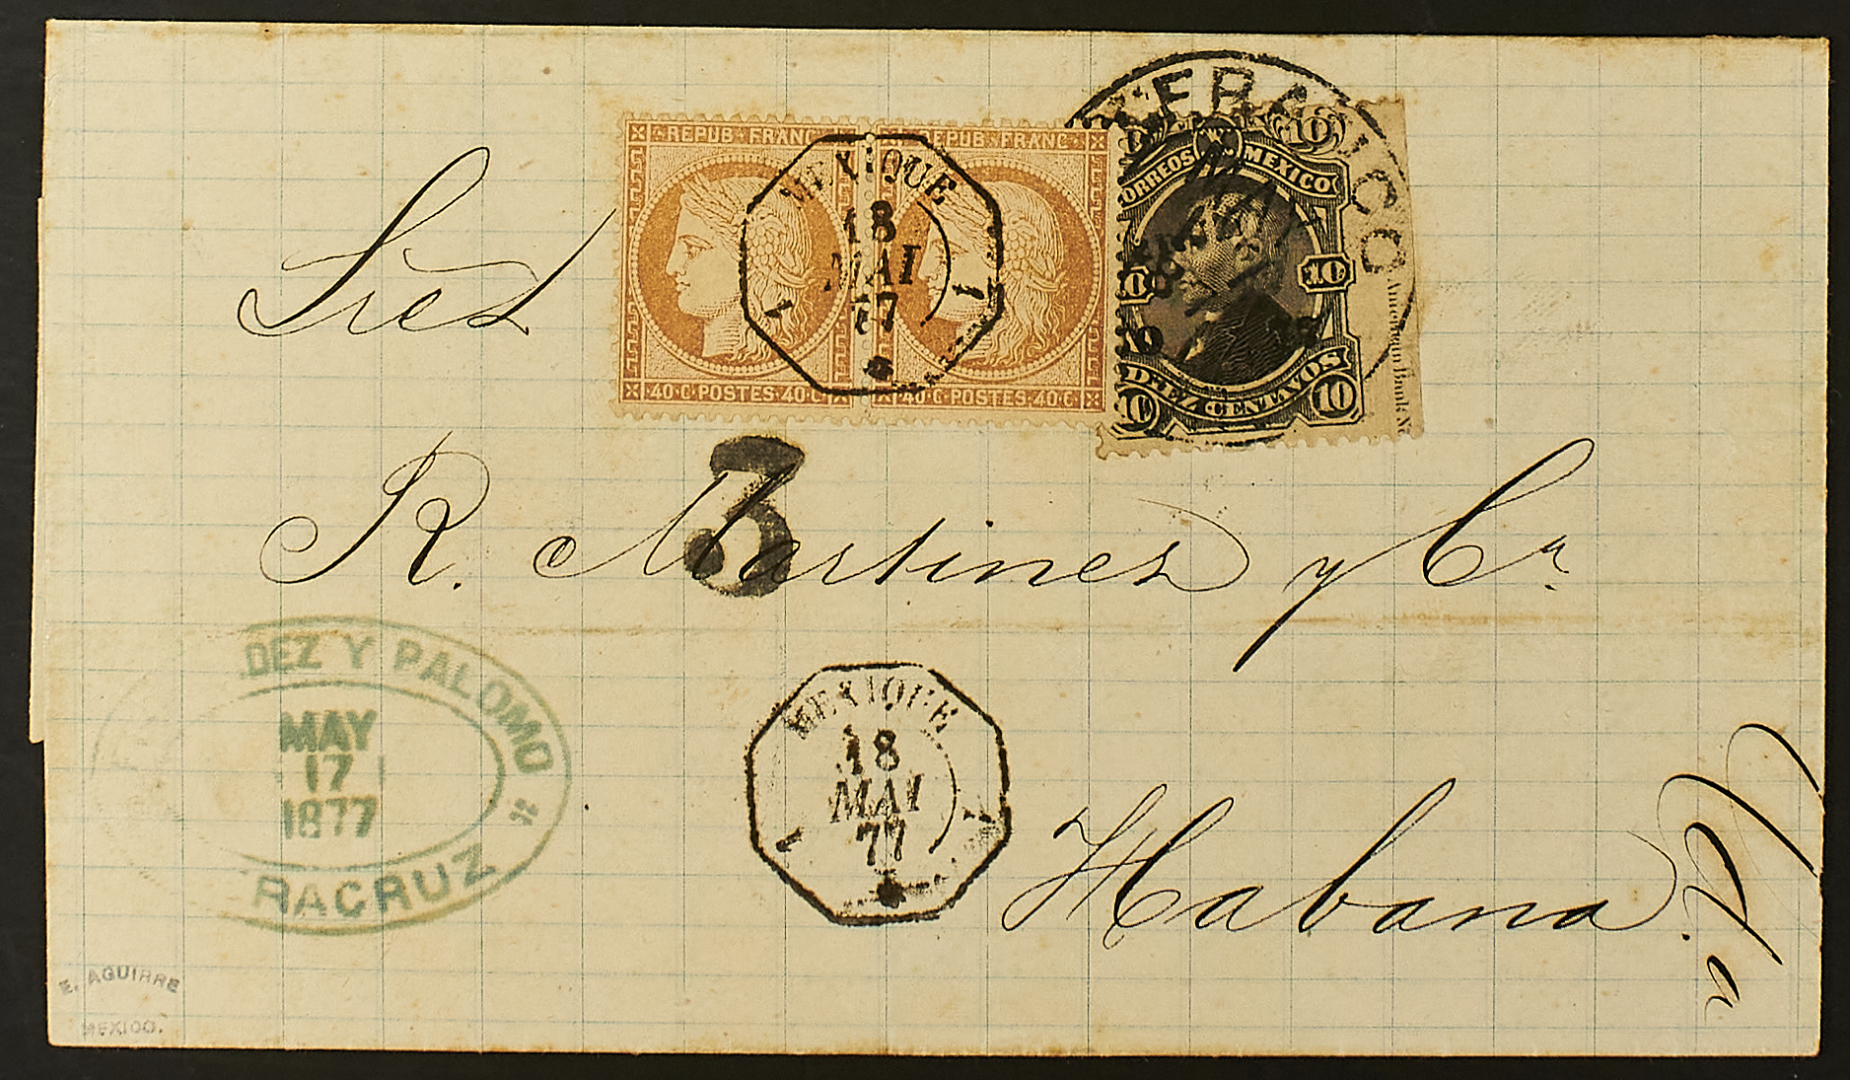 REPUB FRANC
40·C·POSTES·40·C
REPUB FRANC
40·C·POSTES·40·C
MEXIQUE
18
MAI
77
10
CORREOS MEXICO
10
10
DIEZ CENTAVOS
10
American Bank N
FRANCO
Sres
R. Martinez y Ca
3
DEZ Y PALOMO
MAY
17
1877
RACRUZ
MEXIQUE
18
MAI
77
Habana.
E. AGUIRRE
MEXICO.